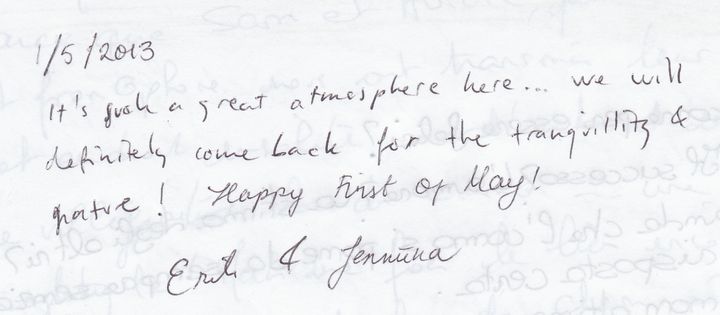 1/5/2013
It's such a great atmosphere here... we will
definitely come back for the tranquillity &
nature! Happy First of May!
&